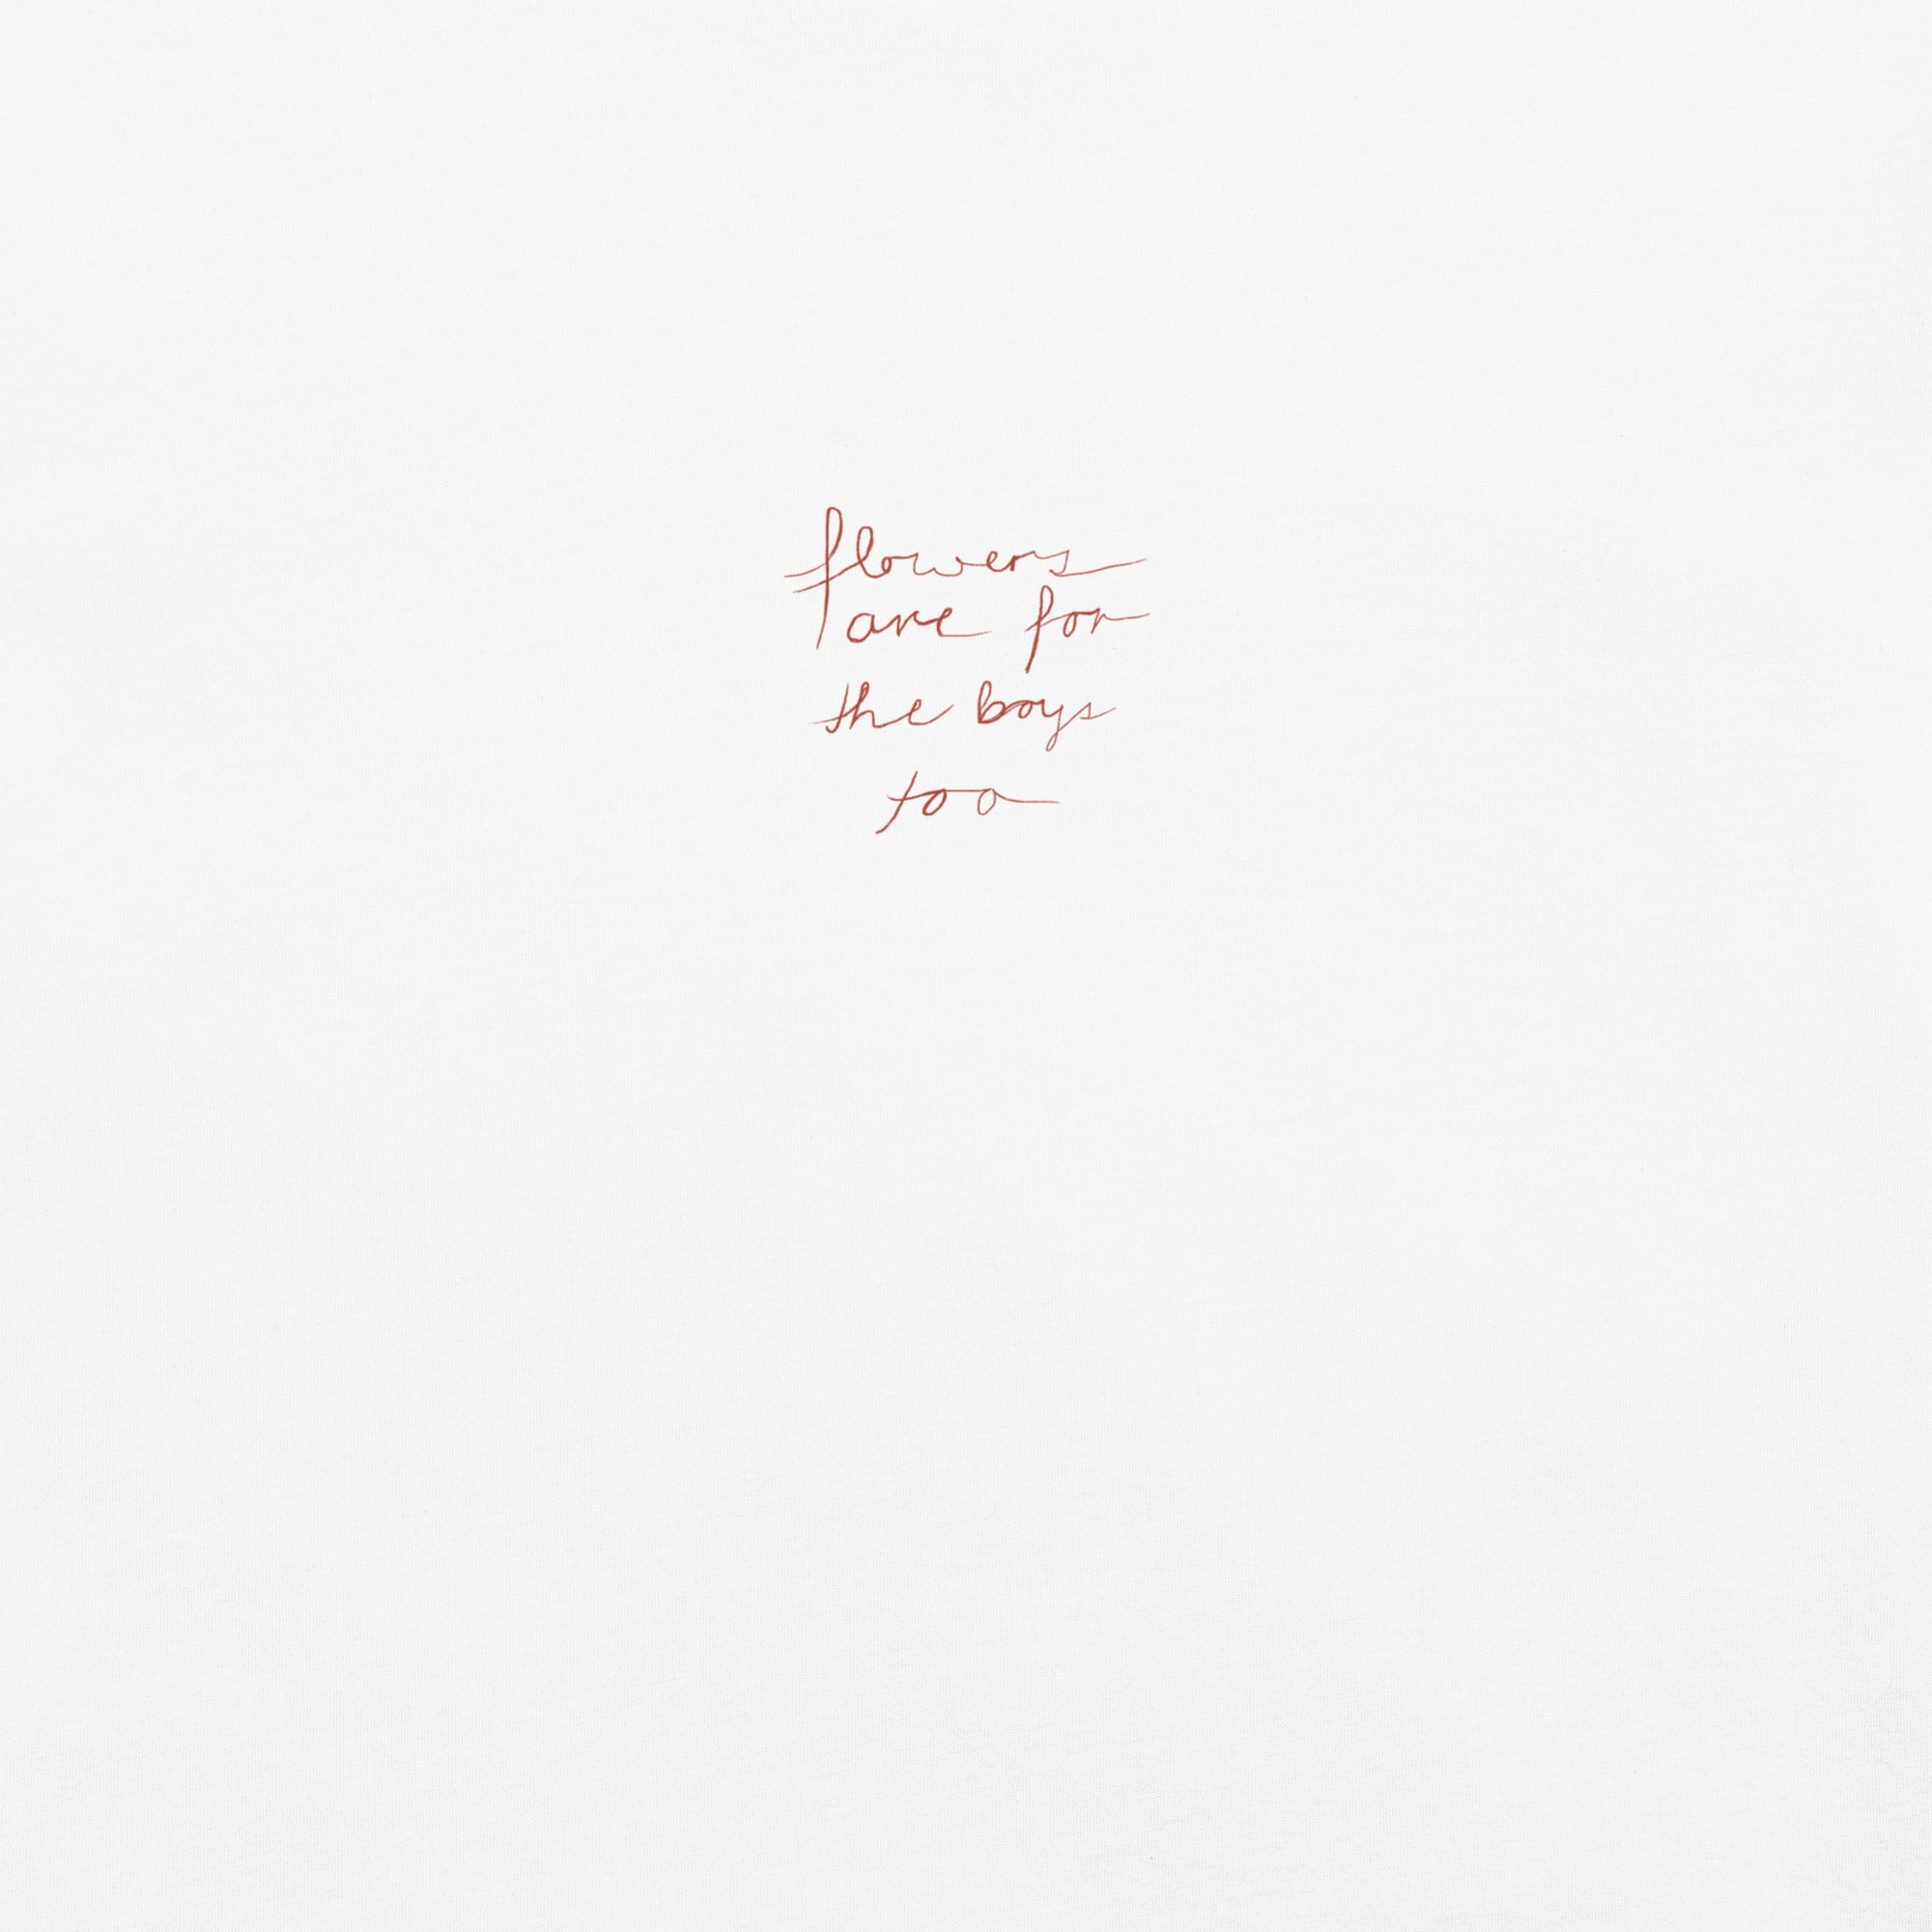 flowers
are for
the boys
too